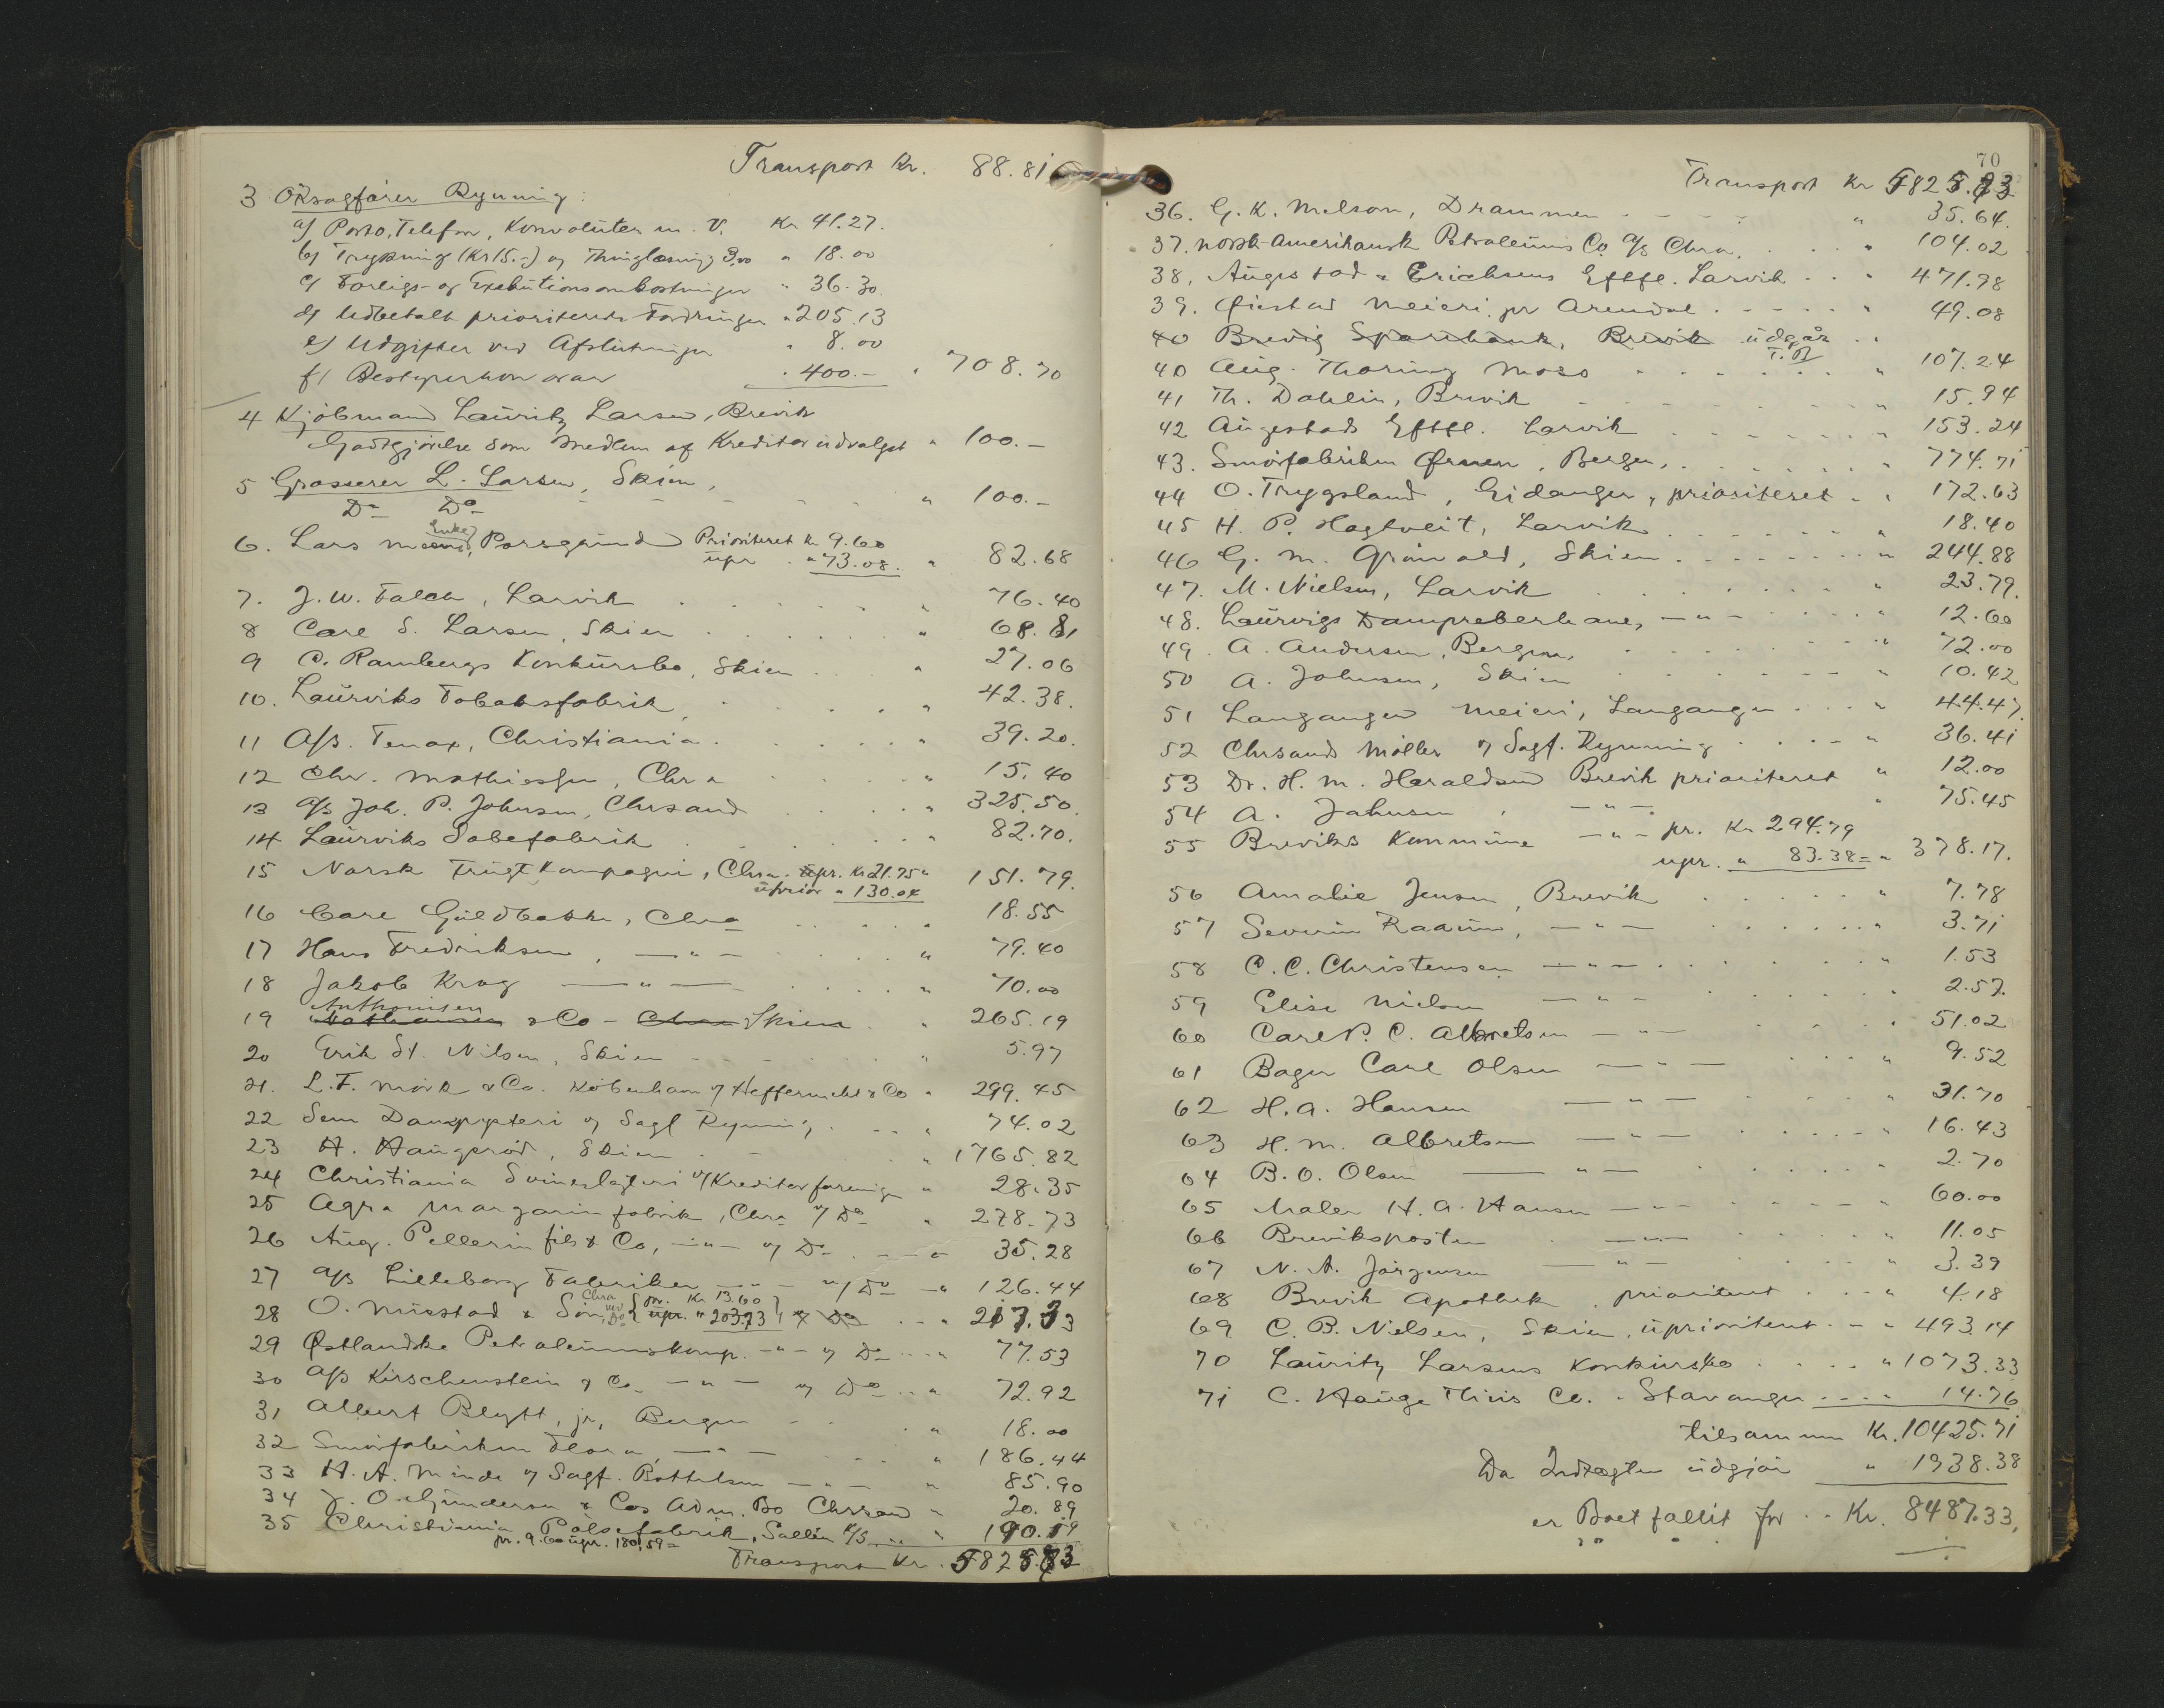 Transport Kr. 88.81
3 ORsagfører Rynning:
a) Porto, Telefon, Konvoluter m. V. Kr 41.27.
b) Trykning (Kr 15.-) og Thinglæsning 3,00 " 18.00
c) Forligs- og Exekutionsomkostninger " 36.30.
d) Udbetalt prioriterede Fordringer " 205.13
e) Udgifter ved Afslutninger " 8.00
f) Bestyrerhonorar " 400.- " 708.70
4 Kjøbmand Lauritz Larsen, Brevik
Godtgjørelse som Medlem af Kreditorudvalget " 100.-
5 Grosserer L. Larsen, Skien,
Do Do " 100.-
6. Lars Moens Enke, Porsgrund Prioriteret Kr 9.60
upr. " 73.08. " 82.68
7. J. W. Falch, Larvik " 76.40
8 Carl S. Larsen, Skien " 68.81
9 C. Rambergs Konkursbo, Skien " 27.06
10. Laurviks Tobaksfabrik " 42.38.
11 A/S. Tenax, Christiania " 39.20.
12 Chr. Mathiesen, Chra " 15.40
13 A/S Joh. P. Johnsen, Chrsand " 325.50
14 Laurviks Sæbefabrik " 82.70.
15 Norsk Frugtkompagni, Chra. pr. Kr 21.75 " 151.79.
uprior " 130.04
16 Carl Guldbakke, Chra 18.55
17 Hans Fredriksen, — " — " 79.40
18 Jakob Krag — " — " 70.00
19 Anthonisen & Co - Skien " 265.19
20 Erik St. Nilsen, Skien " 5.97
21. L. F. Mørk & Co. København v/ & Co " 299.45
22 Sem Dampysteri v/ Sagf Rynning " 74.02
23 H. Haugerød, Skien " 1765.82
24 Christiania Svineslagteri v/ Kreditorforening " 28.35
25 Agra Margarinfabrik, Chra v/ Do " 278.73
26 Aug. Pellerin fils & Co, — " — v/ Do " 35.28
27 A/S Lilleborg Fabriker — " — v/ Do " 126.44
28 O. Mustad & Søn, Chra ved Do { pr. Kr 13.60 upr. " 203.73 } v/ Do " 217.33
29 Østlandske Petroleumskomp. — " — v/ Do " 77.53
30 A/S Kirschenstein & Co — " — v/ Do " 72.92
31 Albert Blytt, jr, Bergen " 18.00
32 Smørfabriken Flora, — " — " 186.44
33 H. A. Minde v/ Sagf. Bottelsen — " — " 85.90
34 J. O. Gundersen & Cos Adm. Bo Chrsand " 20.89
35 Christiania Pølsefabrik, Sallin A/S " 190.19
pr. 9.60 upr. 180.59 =
Transport Kr. 5825.83
70
Transport Kr 5825.83
36. G. K. Melson, Drammen " 35.64.
37. Norsk-Amerikansk Petroleums Co. A/S Chra. " 104.02
38, Augestad & Erichsens Eftfl. Larvik " 471.78
39. Øiestad Meieri, pr Arendal " 49.08
40 Brevig Sparebank, Brevik udgår
T. R
40 Aug. Thoring Moss " 107.24
41 Th. Dahlin, Brevik " 15.94
42 Augestads Eftfl. Larvik " 153.24
43. Smørfabriken Ørnen, Bergen, " 774.71
44 O. Trygsland, Eidanger, prioriteret " 172.63
45 H. P. Hagtveit, Larvik " 18.40
46 G. M. Grønvold, Skien " 244.88
47. M. Nielsen, Larvik " 23.79.
48. Laurvigs Dampveberbane, — " — " 12.60
49. A. Andersen, Bergen, " 72.00
50 A. Johnsen, Skien " 10.42
51 Langangen Meieri, Langangen " 44.47
52 Chrsands Møller v/ Sagf. Rynning " 36.41
53 Dr. H. M. Haraldsen Brevik prioriteret " 12.00
54 A. Johnsen, — " — " 75.45
55 Breviks Kommune — " — pr. Kr 294.79
upr. " 83.38 = " 378.17.
56 Amalie Jensen, Brevik " 7.78
57 Severin Raaum, — " — " 3.71
58 C. C. Christensen — " — " 1.53
59 Elise Nielsen — " — " 2.57.
60 Carl P. C. Albretsen — " — " 51.02
61 Bager Carl Olsen — " — " 9.52
62 H. A. Hansen — " — " 31.70
63 H. M. Albretsen — " — " 16.43
64 B. O. Olsen — " — 2.70
65 Maler H. A. Hansen — " — " 60.00
66 Breviksposten — " — " 11.05
67 N. A. Jørgensen — " — " 3.39
68 Brevik Apothek, prioriteret " 4.18
69 C. B. Nielsen, Skien, uprioriteret " 493.14
70 Lauritz Larsens Konkursbo " 1073.33
71 C. Hauge Thiis Co. Stavanger " 14.76
tilsammen Kr. 10425.71
Da Indtægten udgjør " 1938.38
er Boet fallit for Kr. 8487.33,